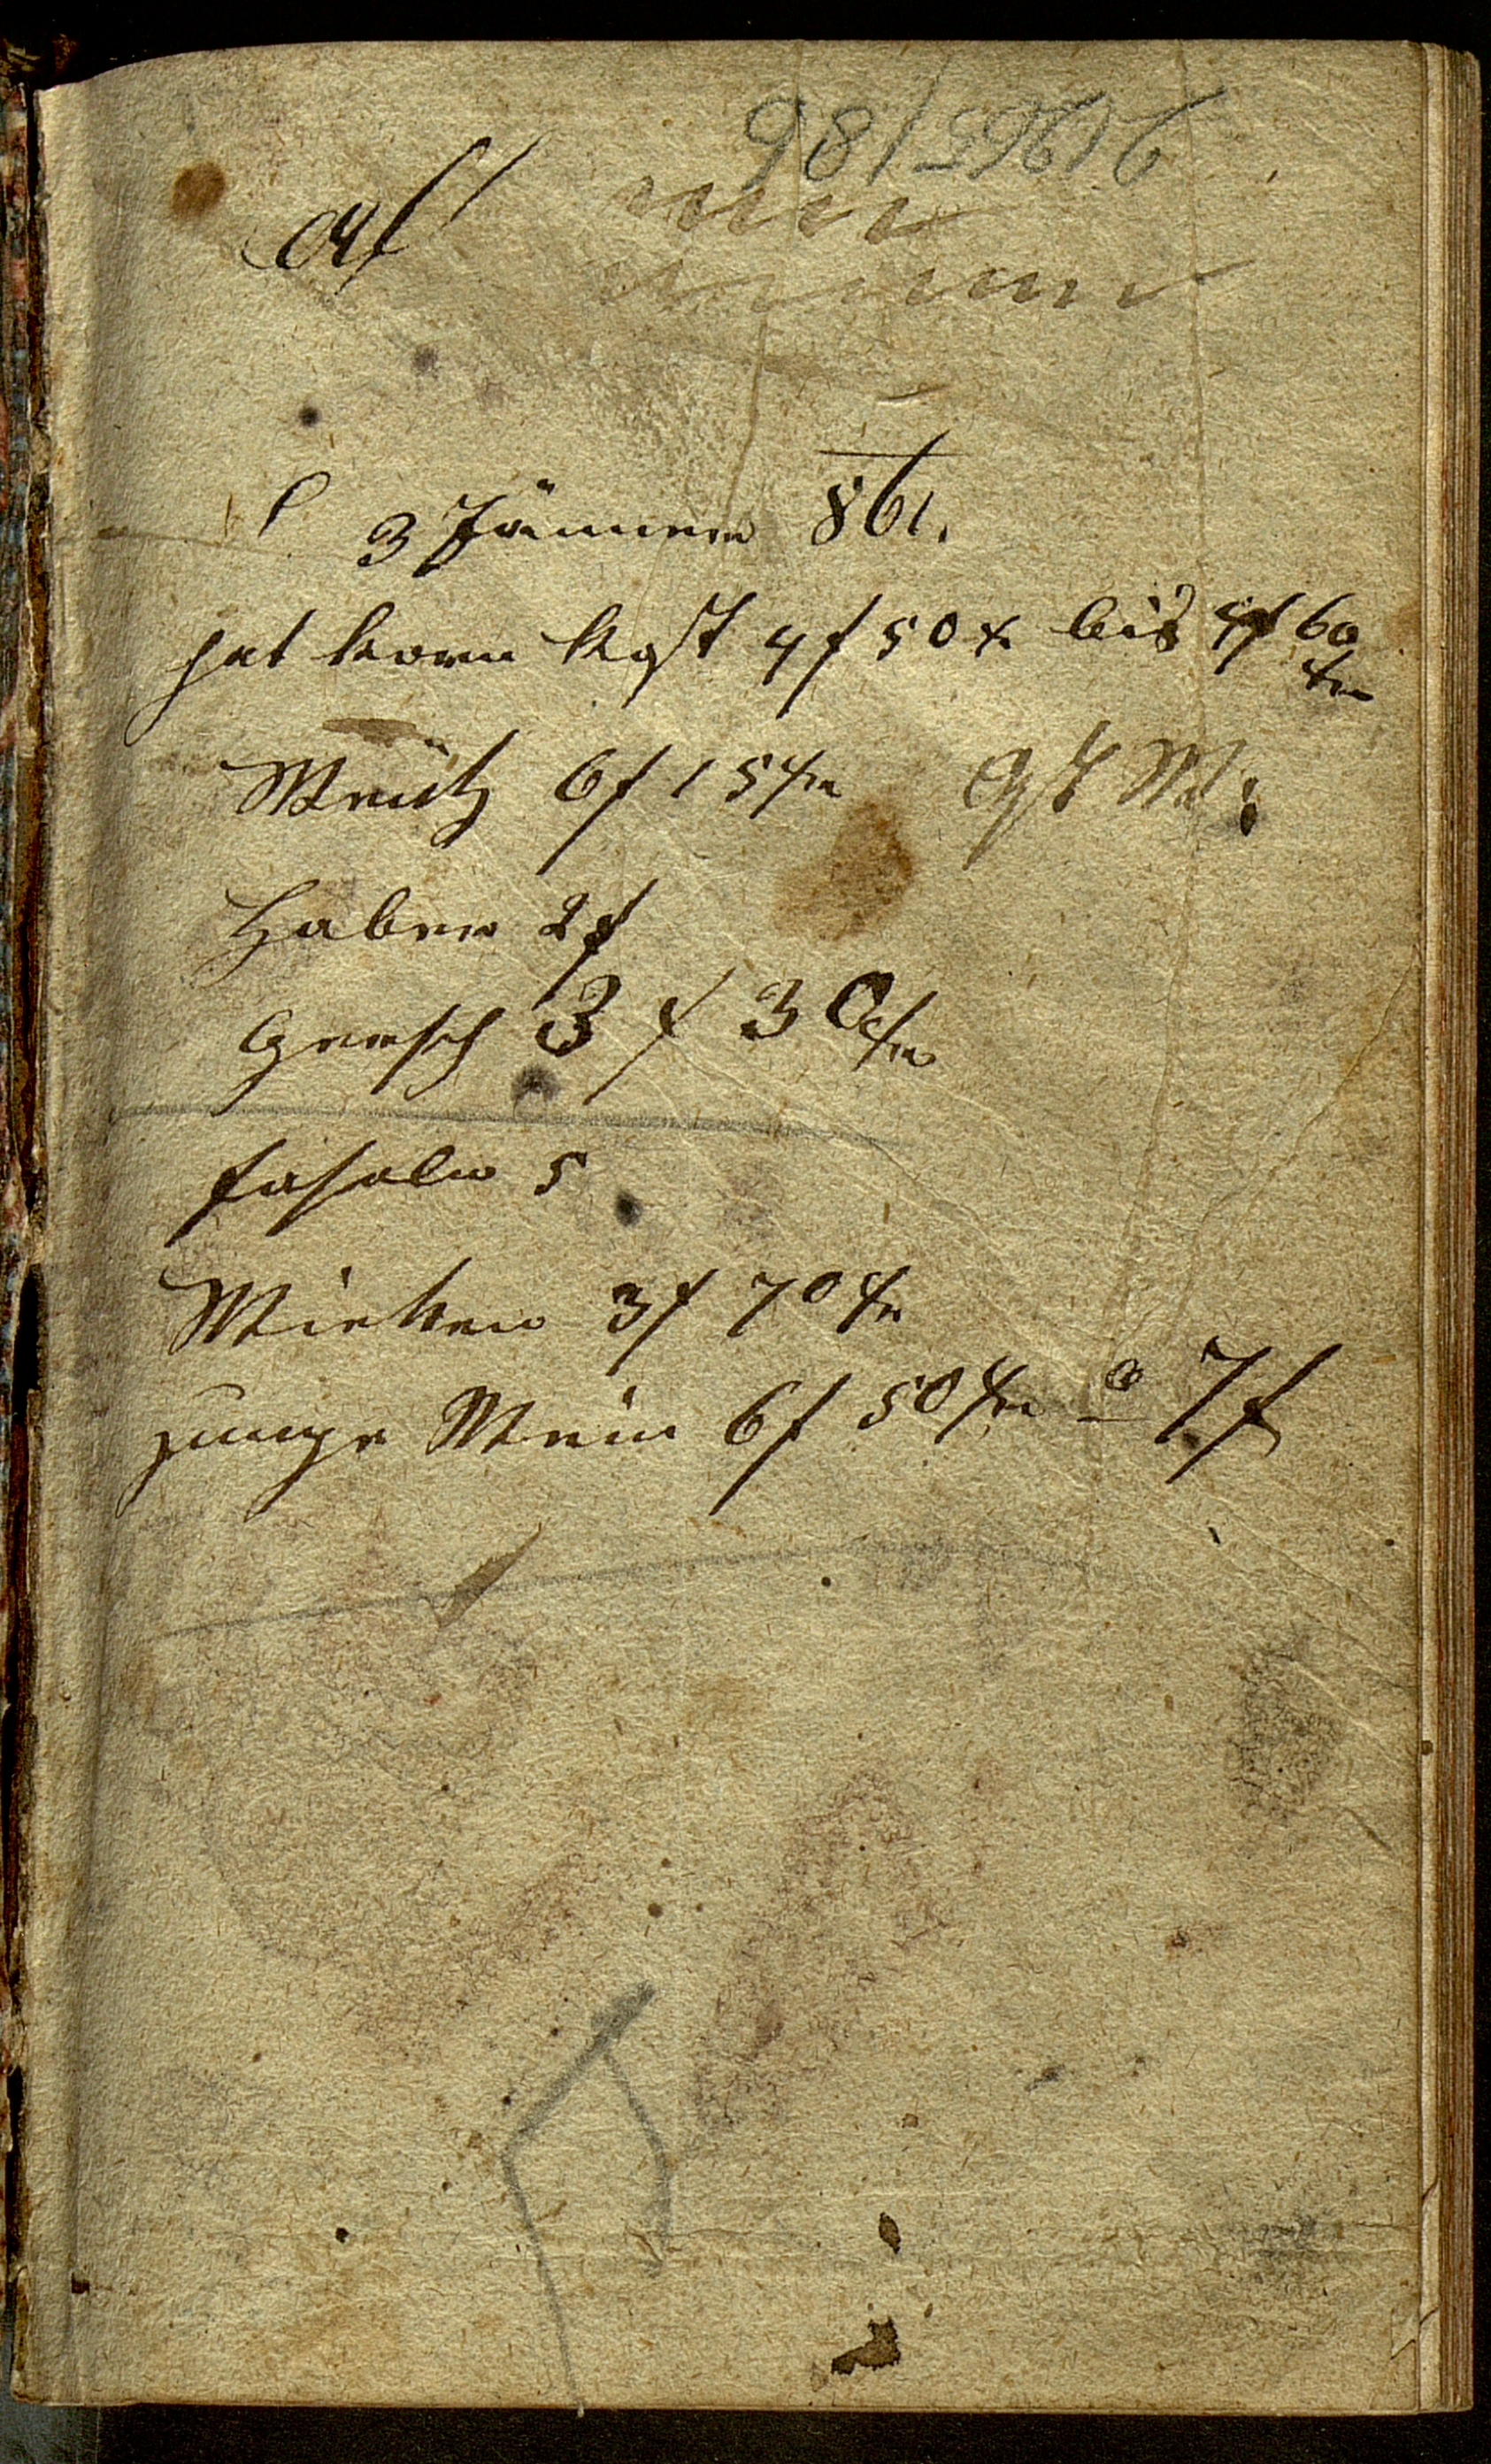 21265/86
3 Jänner 861.
hat korn kost 4 f 50 x bis 4 f 60
xr
Weitz 6 f 15 xr
Haber 2 f
Gersch 3 f 30 xr
fasoln 5
Wicken 3 f 70 xr
junge Wein 6 f 50 xr a 7 f